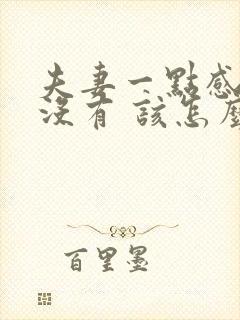 夫妻一點感
沒有 該怎麼
百里墨